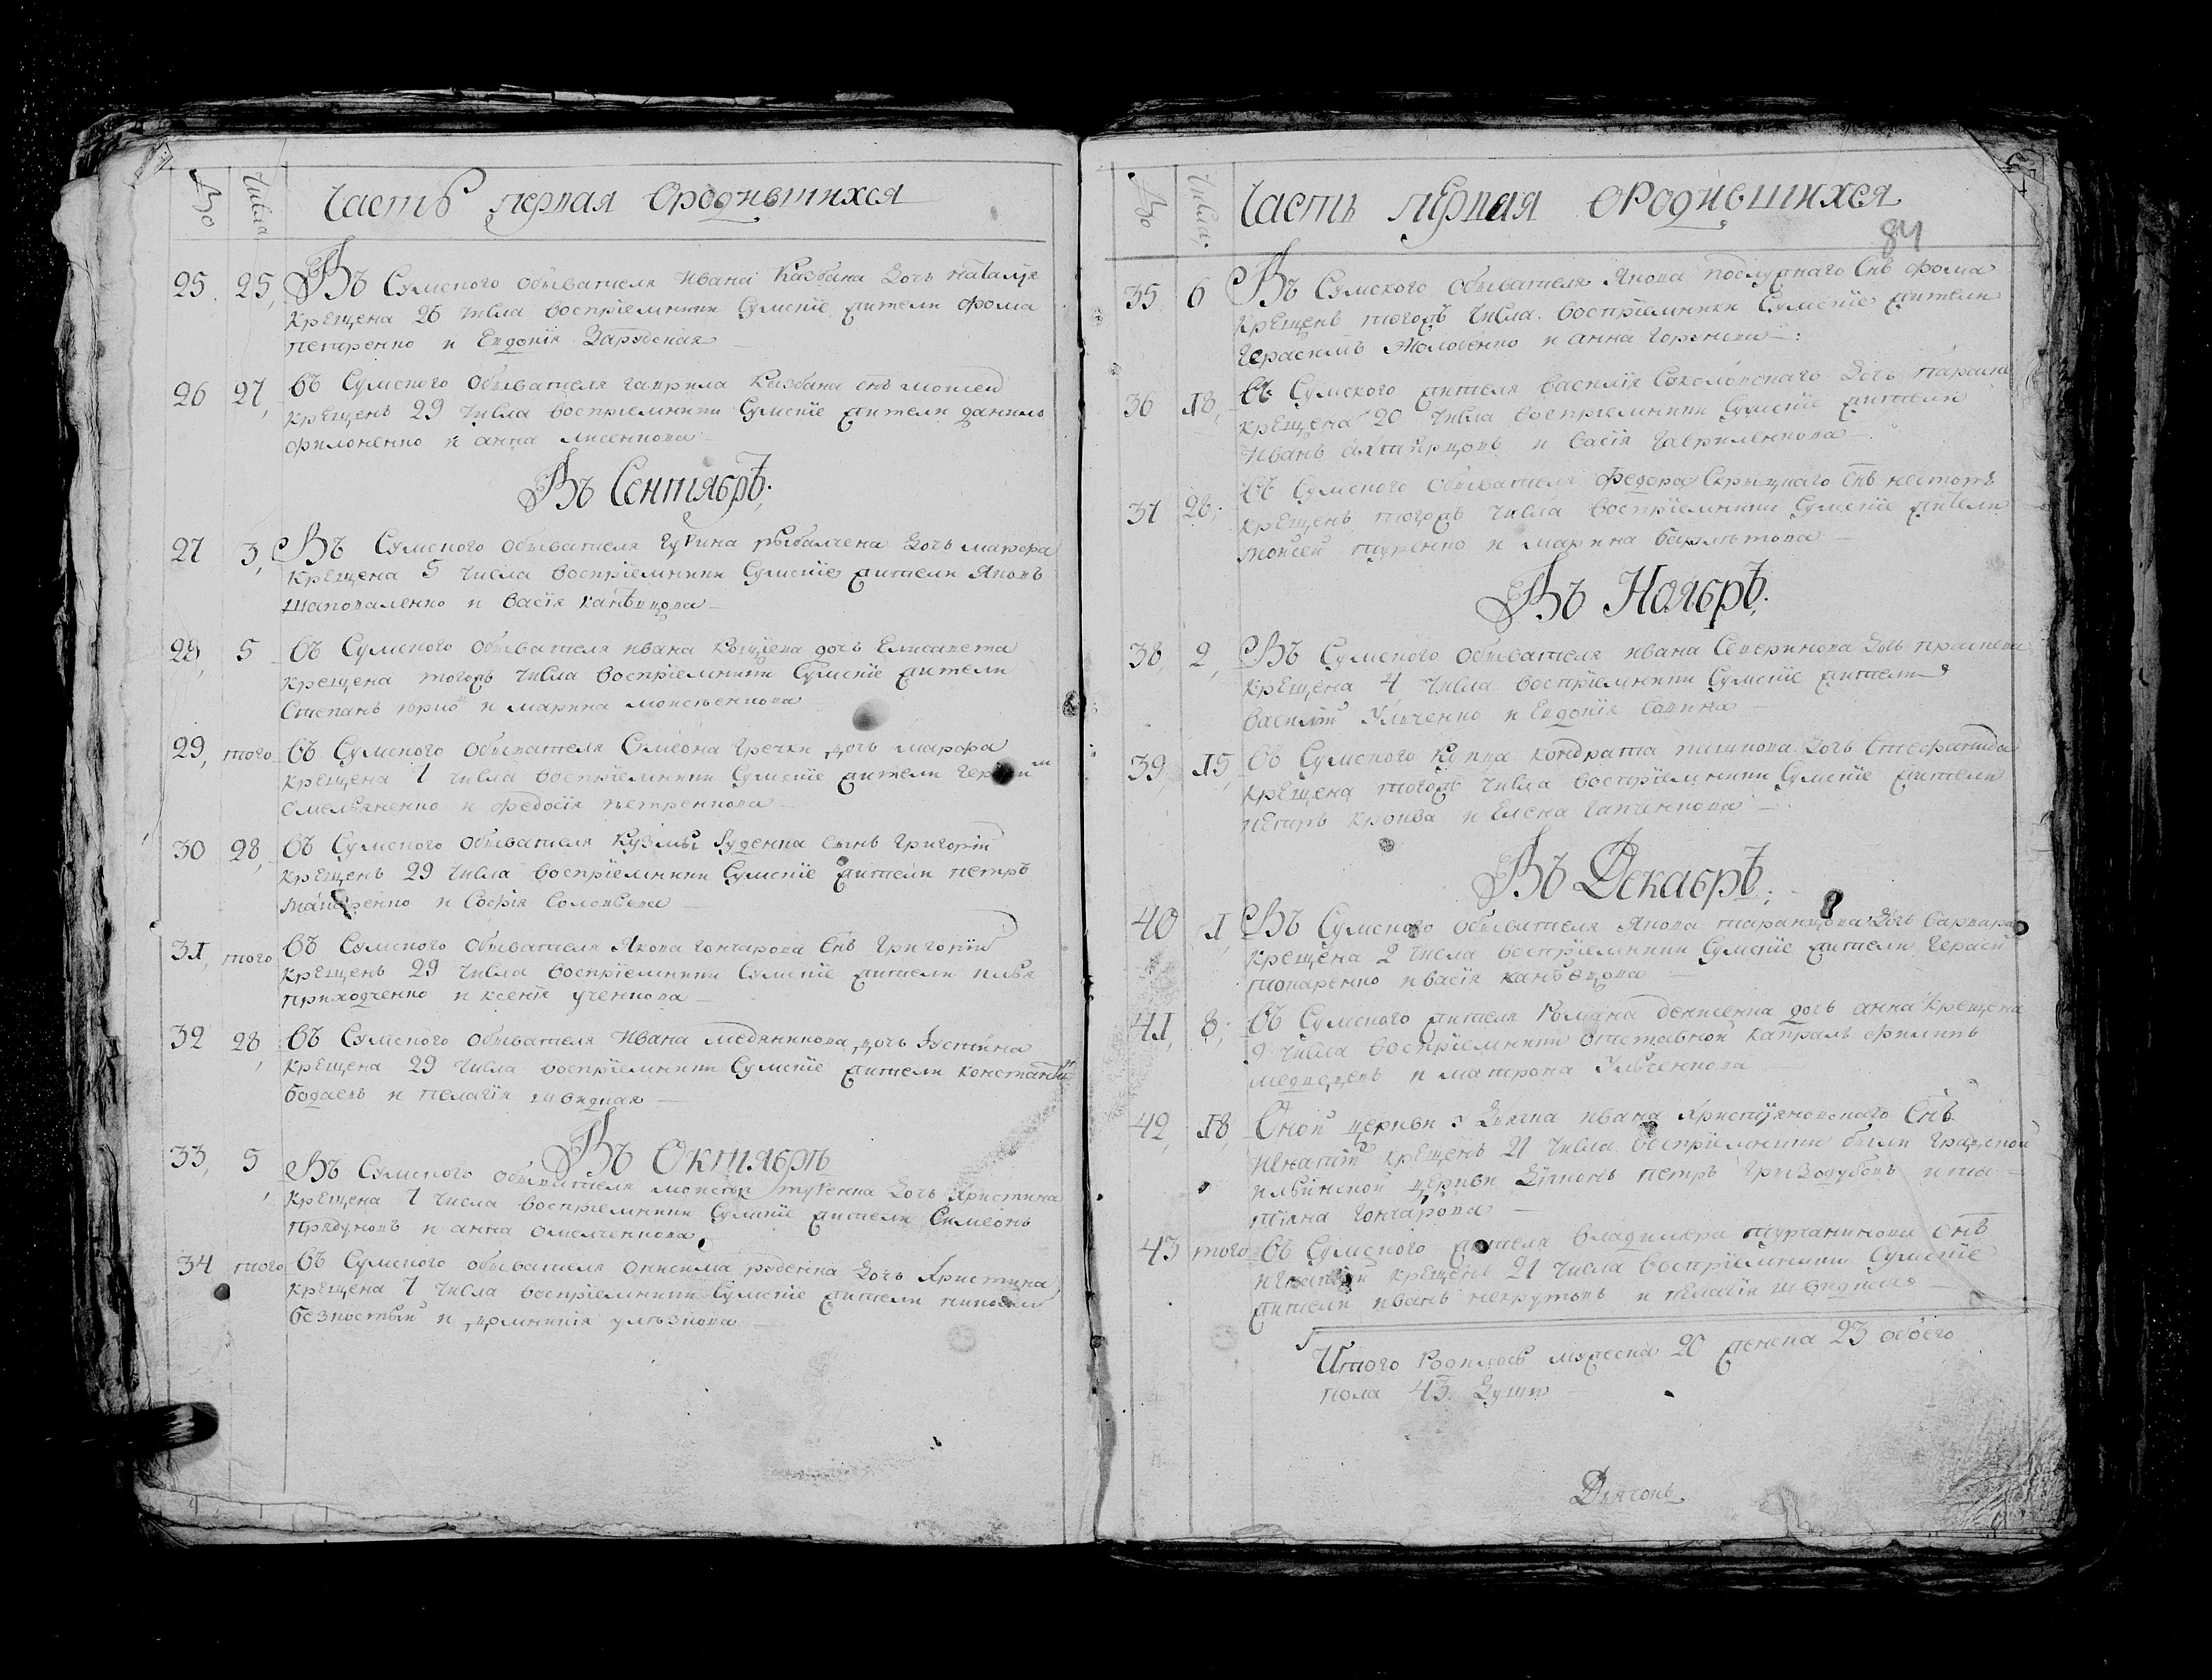 № Числа Часть первая ородившихся
25. 25, Въ Сумского обывателя Ивана Казбана дочь Наталїя
крещена 26 числа восприемники Сумские жители Фома
Петренко и Евдокия Зарудская
26 27, Въ Сумского обывателя гаврила Казбана снъ Моисей
крещенъ 29 числа восприемники Сумскїе жители данило
филоненко и анна лисенкова
Въ Сентябрѣ:
27 3, Въ Сумского обывателя рыбалчена дочь марфа
крещена 5 числа восприемники Сумскїе жители Яковъ
Шаповаленко и васїя канѣвцова
28, 5 Въ Сумского обывателя ивана дочь Елисавета
крещена тогожъ числа восприемники Сумскїе жители
Степанъ юрко и марина моисѣенкова
29, того Въ Сумского обывателя Симеона Гречки дочь марфа
крещена 7 числа восприемники Сумскїе жители
Омельяненко и Федосїя петренкова
30 28, Въ Сумского обывателя Кузмы Руденка сынъ Григорїй
крещенъ 29 числа восприемники Сумскїе жители петръ
и Софїя Соловьева
31, того Въ Сумского обывателя Якова гончарова Снъ Григорїй
крещенъ 29 числа восприемники Сумскїе жители илья
приходченко и ксенїя ученкова
32 28, Въ Сумского обывателя Ивана медяникова дочь Устина
крещена 29 числа восприемники Сумскїе жители констант
бодаевъ и пелагїя швидкая
Въ Октябрѣ
33, 5, Въ Сумского обывателя моисея дочь Христина
крещена 7 числа восприемники Сумскїе жители Симеонъ
и анна омелченкова
34 того Въ Сумского обывателя онисима руденка дочь Христина
крещена 7 числа восприемники Сумскїе жители
безкостый и домникїя
№ Числа: Часть первая ородившихся
84
35 6 Въ Сумского обывателя Якова подлуцкаго Снъ фома
крещенъ тогожъ числа восприемники Сумскїе жители
Герасимъ Жолобенко и анна :
36 18, Въ Сумского жителя василїя Соколовскаго дочь
крещена 20 числа восприемники Сумскїе жители
Иванъ ахтирцовъ и васїя гавриленкова
37 26; Въ Сумского обывателя Федора Скрицкаго Снъ несторъ
крещенъ тогожъ числа восприемники Сумскїе жители
Моисей и марина
Въ Ноябрѣ:
38, 2, Въ Сумского обывателя ивана Северинова дочь
крещена 4 числа восприемники Сумскїе жители
василїй Ульченко и Евдокїя Савина
39, 15, Въ Сумского купца кондрата пащкова дочь Стефанида
крещена тогожъ числа восприемники Сумскїе жители
петръ кропва и Елена Гапченкова
Въ Декабрѣ:
40 1, Въ Сумского обывателя Якова таранцова дочь варвара
крещена 2 числа восприемники Сумскїе жители Гераси
токаренко и васїя канѣвцова
41, 8; Въ Сумского жителя Романа денисенка дочь анна крещена
9 числа восприемники отставной капралъ филипъ
медведевъ и матрона Ульченкова
42, 18, Оной церкви дьячка ивана Христїяновскаго Снъ
Игнатїй крещенъ 21 числа восприемники были градской
ильинской церкви дїяконъ петръ Гризодубовъ и та-
тїяна гончарова
43 того Въ Сумского жителя владимера турчанинова Снъ
игнатїй крещенъ 21 числа восприемники Сумскїе
жители иванъ некрутовъ и пелагїя швидкая
Итого родилось мужеска 20 женска 23 обоего
пола 43. души